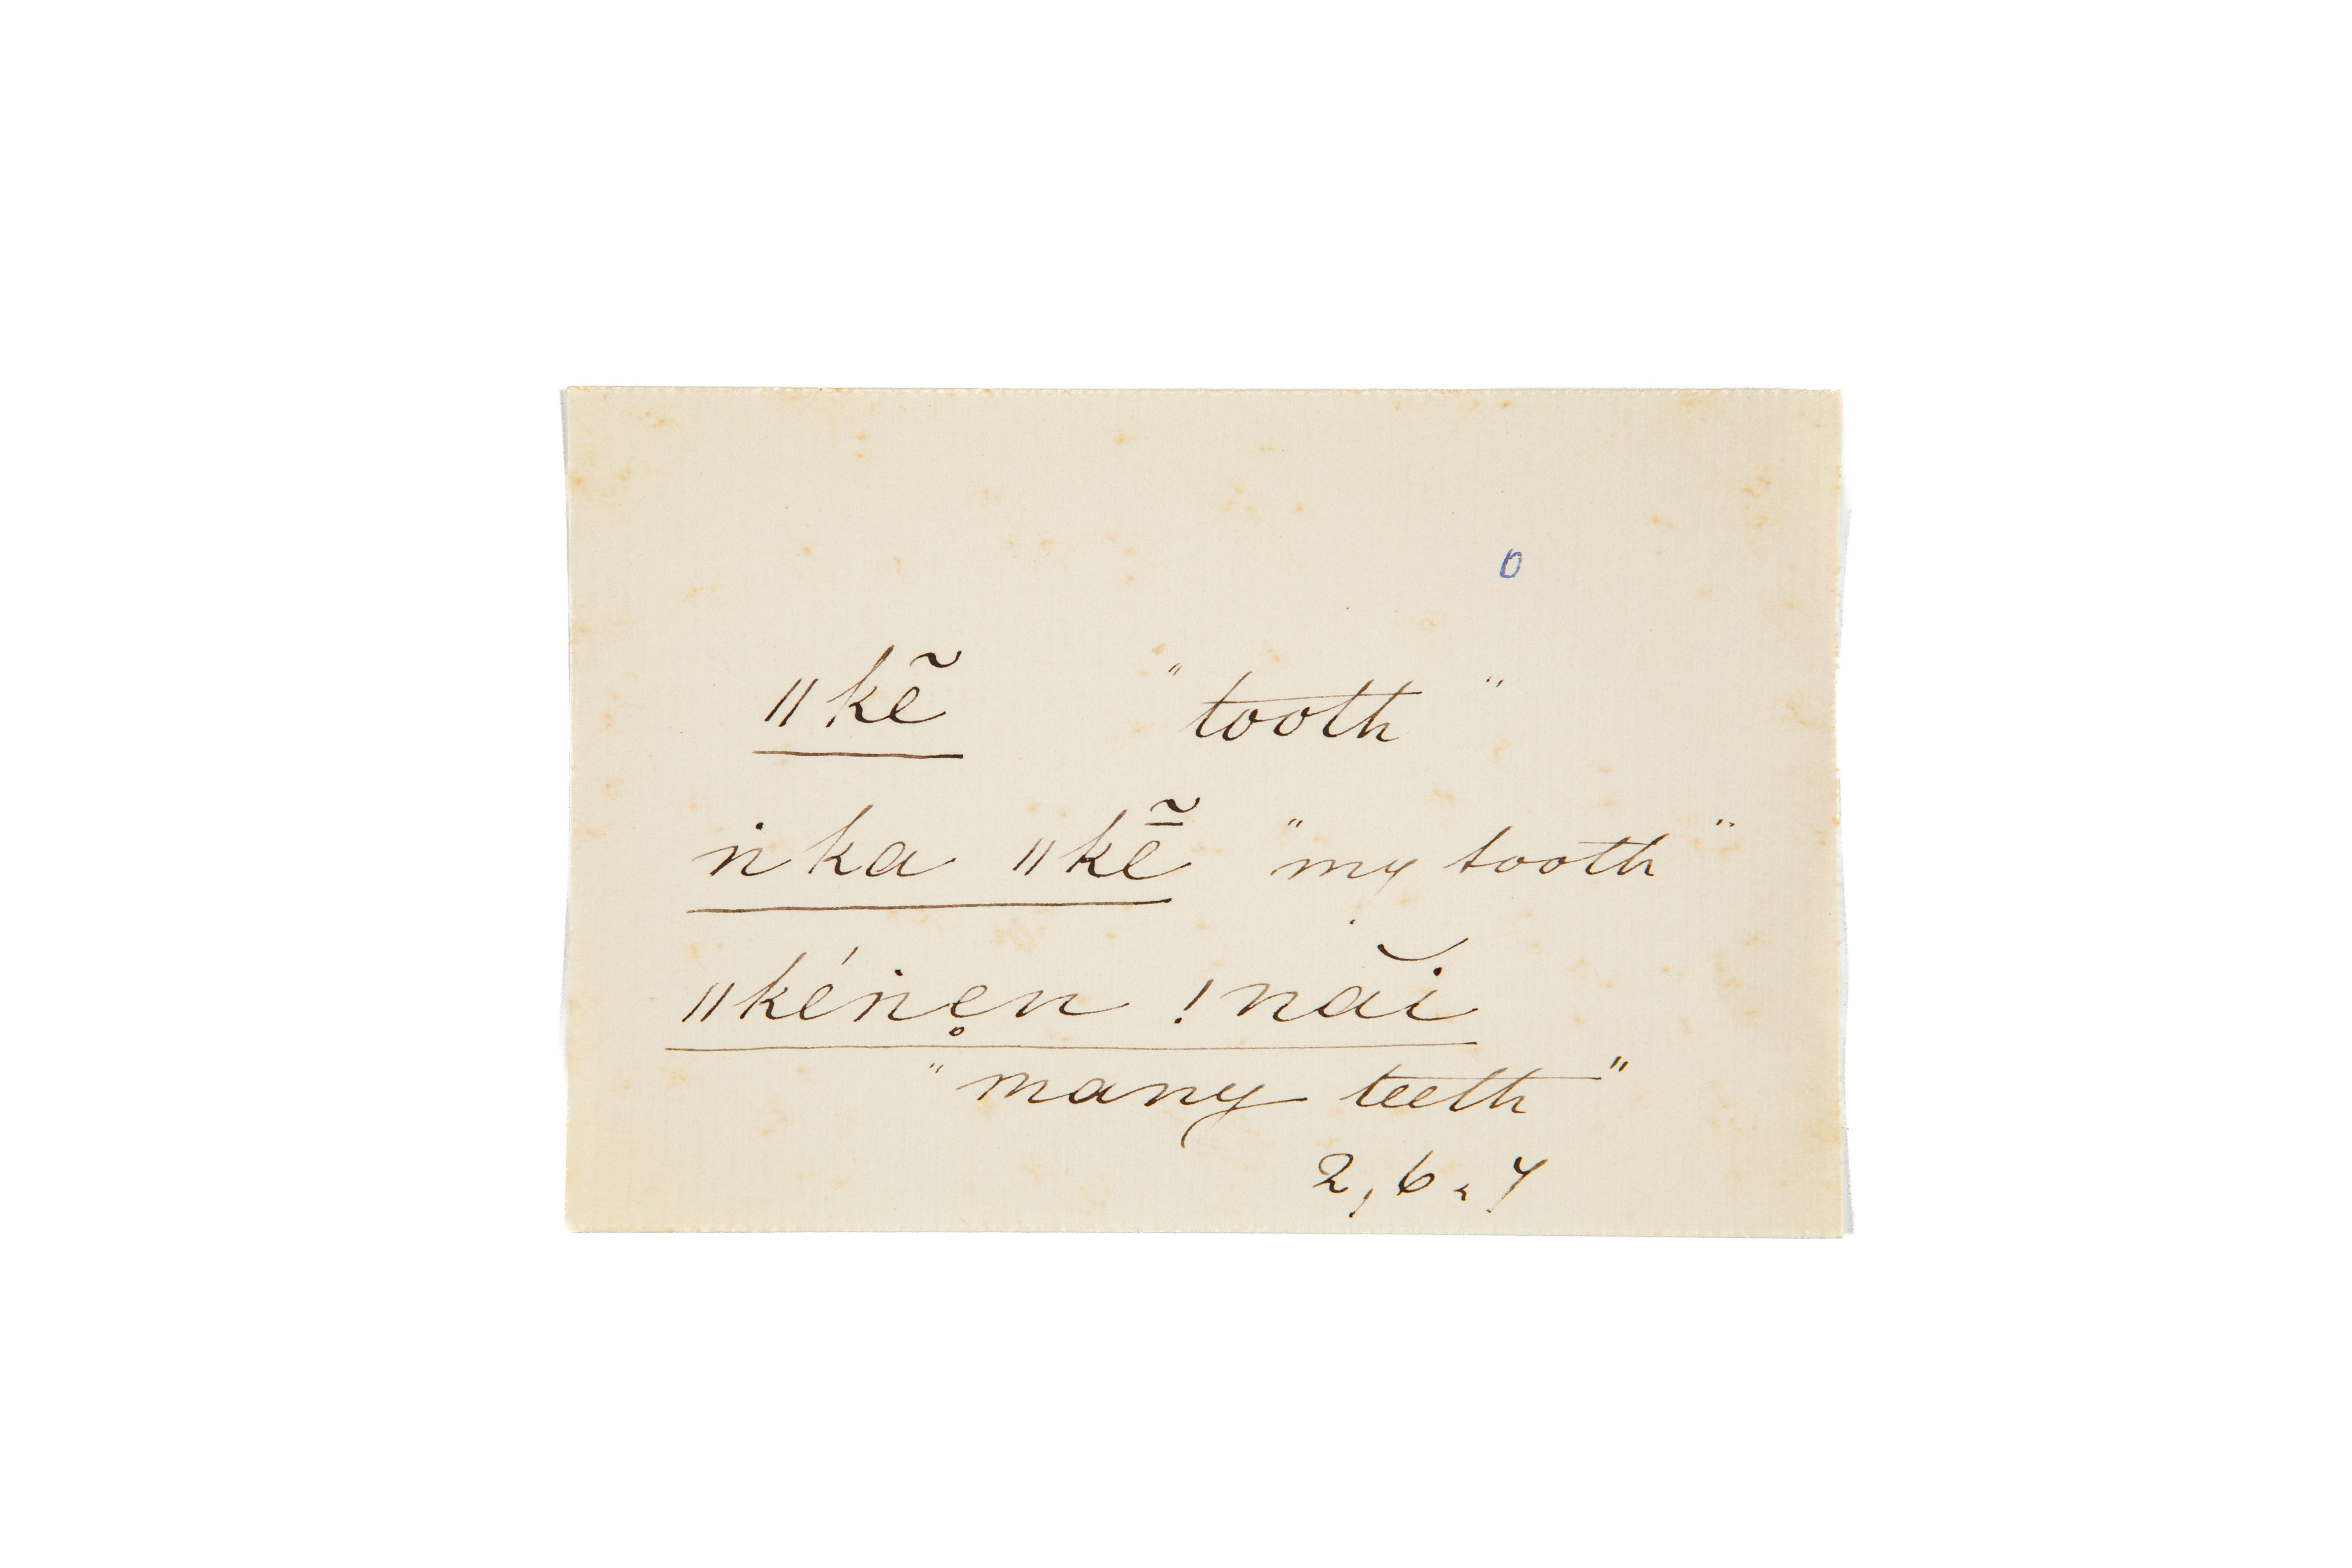 0
ǁkẽ "tooth"
ṅka ǁkẽ̄ "my tooth"
ǁkéṅe̥n !năi
"many teeth"
2, 6. 7